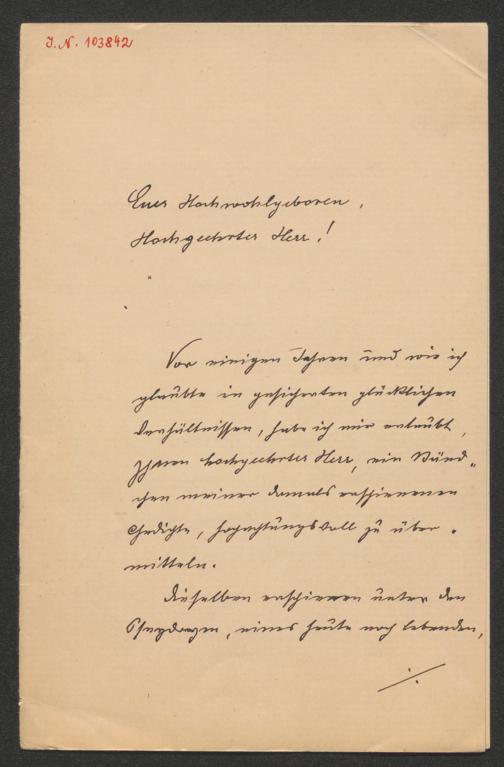 I. N. 103842
Euer Hochwohlgeboren,
Hochgeehrter Herr!
Vor einigen Jahren und wie ich
glaubte in gesicherten glücklichen
Verhältnissen, habe ich mir erlaubt,
Ihnen hochgeehrter Herr, ein Bänd-
chen meiner damals erschienenen
Gedichte, hochachtungsvoll zu über-
mitteln.
Dieselben erschienen unter dem
eines heute noch lebenden,
./.